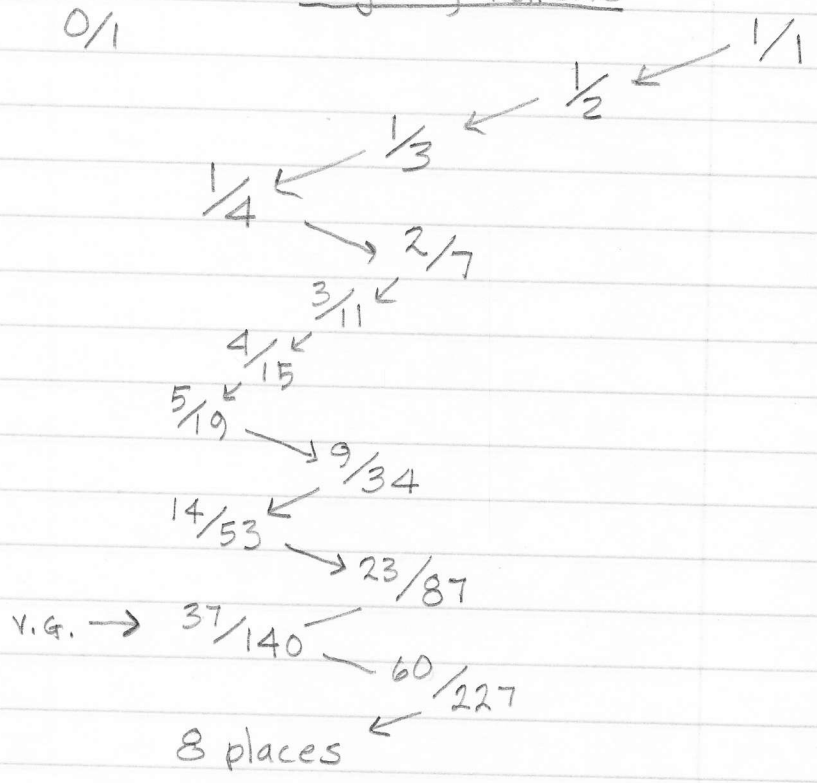 0/1 1/1
1/2
1/3
1/4
2/7
3/11
4/15
5/19
9/34
14/53
23/87
V.G. → 37/140
60/227
8 places